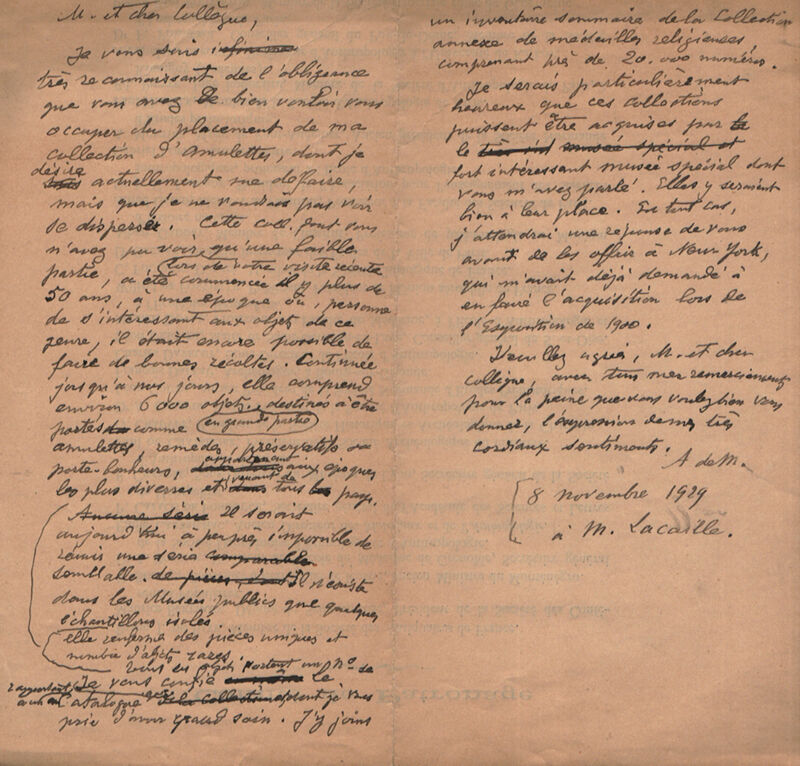 M. et cher Collègue,
Je vous suis infiniment
très reconnaissant de l'obligeance
que vous avez de bien vouloir vous
occuper du placement de ma
collection d'amulettes, dont je
désire
actuellement me défaire,
mais que je ne voudrais pas voir
se disperser. Cette coll. dont vous
n'avez pu voir, qu'une faible
partie, lors de votre visite récente
a été commencée il y plus de
50 ans, à une époque où, personne
ne s'intéressant aux objets de ce
genre, il était encore possible de
faire de bonnes récoltes. Continuée
jusqu'à nos jours, elle comprend
environ 6000 objets, destinés à être
portés comme en grande partie
amulettes, remèdes, préservatifs ou
porte-bonheurs, aux époques
les plus diverses et venant de tous pays.
Aucune série Il serait
aujourd'hui à peu près impossible de
réunir une série comparable
semblable. de pièces, dont Il n'existe
dans les Musées publics que quelques
échantillons isolés.
elle renferme des pièces uniques et
nombre d'objets rares.
tous ces objets portent un No se
rapportant
Je vous confie le
au catalogue de la collection dont je vous
prie d'avoir grand soin. J'y joins
un inventaire sommaire de la Collection
annexe de médailles religieuses,
comprenant près de 20.000 numéros.
Je serais particulièrement
heureux que ces collections
puissent être acquises par le
le très musée spécial et
fort intéressant musée spécial dont
vous m'avez parlé. Elles y seraient
bien à leur place. En tout cas,
j'attendrai une réponse de vous
avant de les offrir à New York,
qui m'avait déjà demandé à
en faire l'acquisition lors de
l'Exposition de 1900.
Veuillez agréer, M. et cher
collègue, avec tous mes remerciements
pour la peine que vous voulez bien vous
donner, l'expression de mes très
cordiaux sentiments.
A de M.
8 novembre 1929
à M. Lacaille.